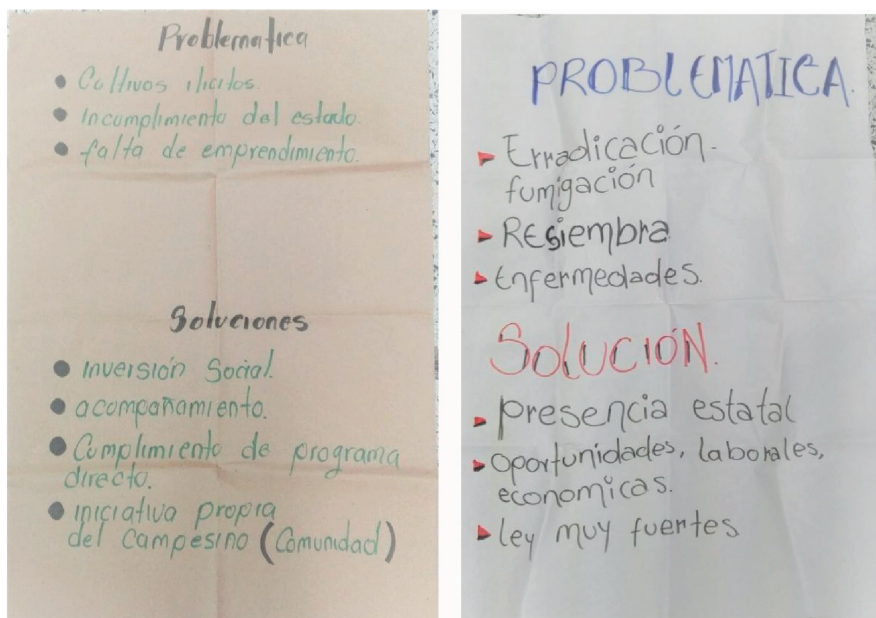 Problematica
• Cultivos ilicitos.
• Incumplimiento del estado.
• falta de emprendimiento.
Soluciones
• inversión Social.
• acompañamiento.
• Cumplimiento de programa
directo.
• iniciativa propia
del campesino (Comunidad)
PROBLEMATICA.
▸ Erradicación-
fumigación
▸ REsiembra
▸ Enfermedades.
SOLUCIÓN.
▸ presencia estatal
▸ oportunidades, laborales,
economicas.
▸ ley muy fuertes